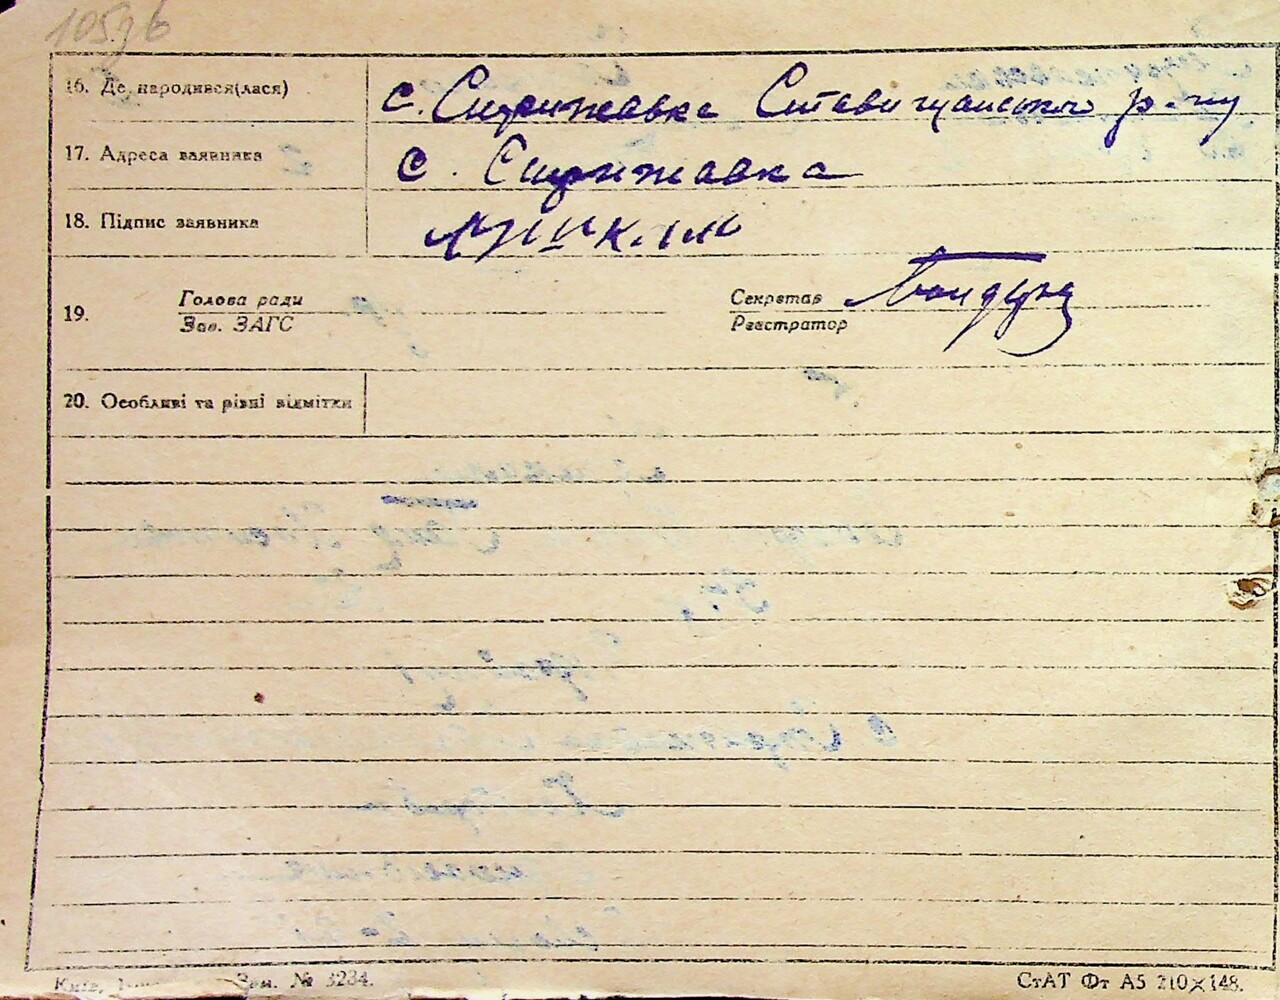 105зв
16. Де народився(лася) с. Стрижавка Ставищанського р-ну
17. Адреса заявника с. Стрижавка
18. Підпис заявника
Голова ради Секретар
19.
Зав. ЗАГС Реєстратор
20. Особливі та різні відмітки
Київ, Зам. № 3234. СтАТ Фт А5 210×148.